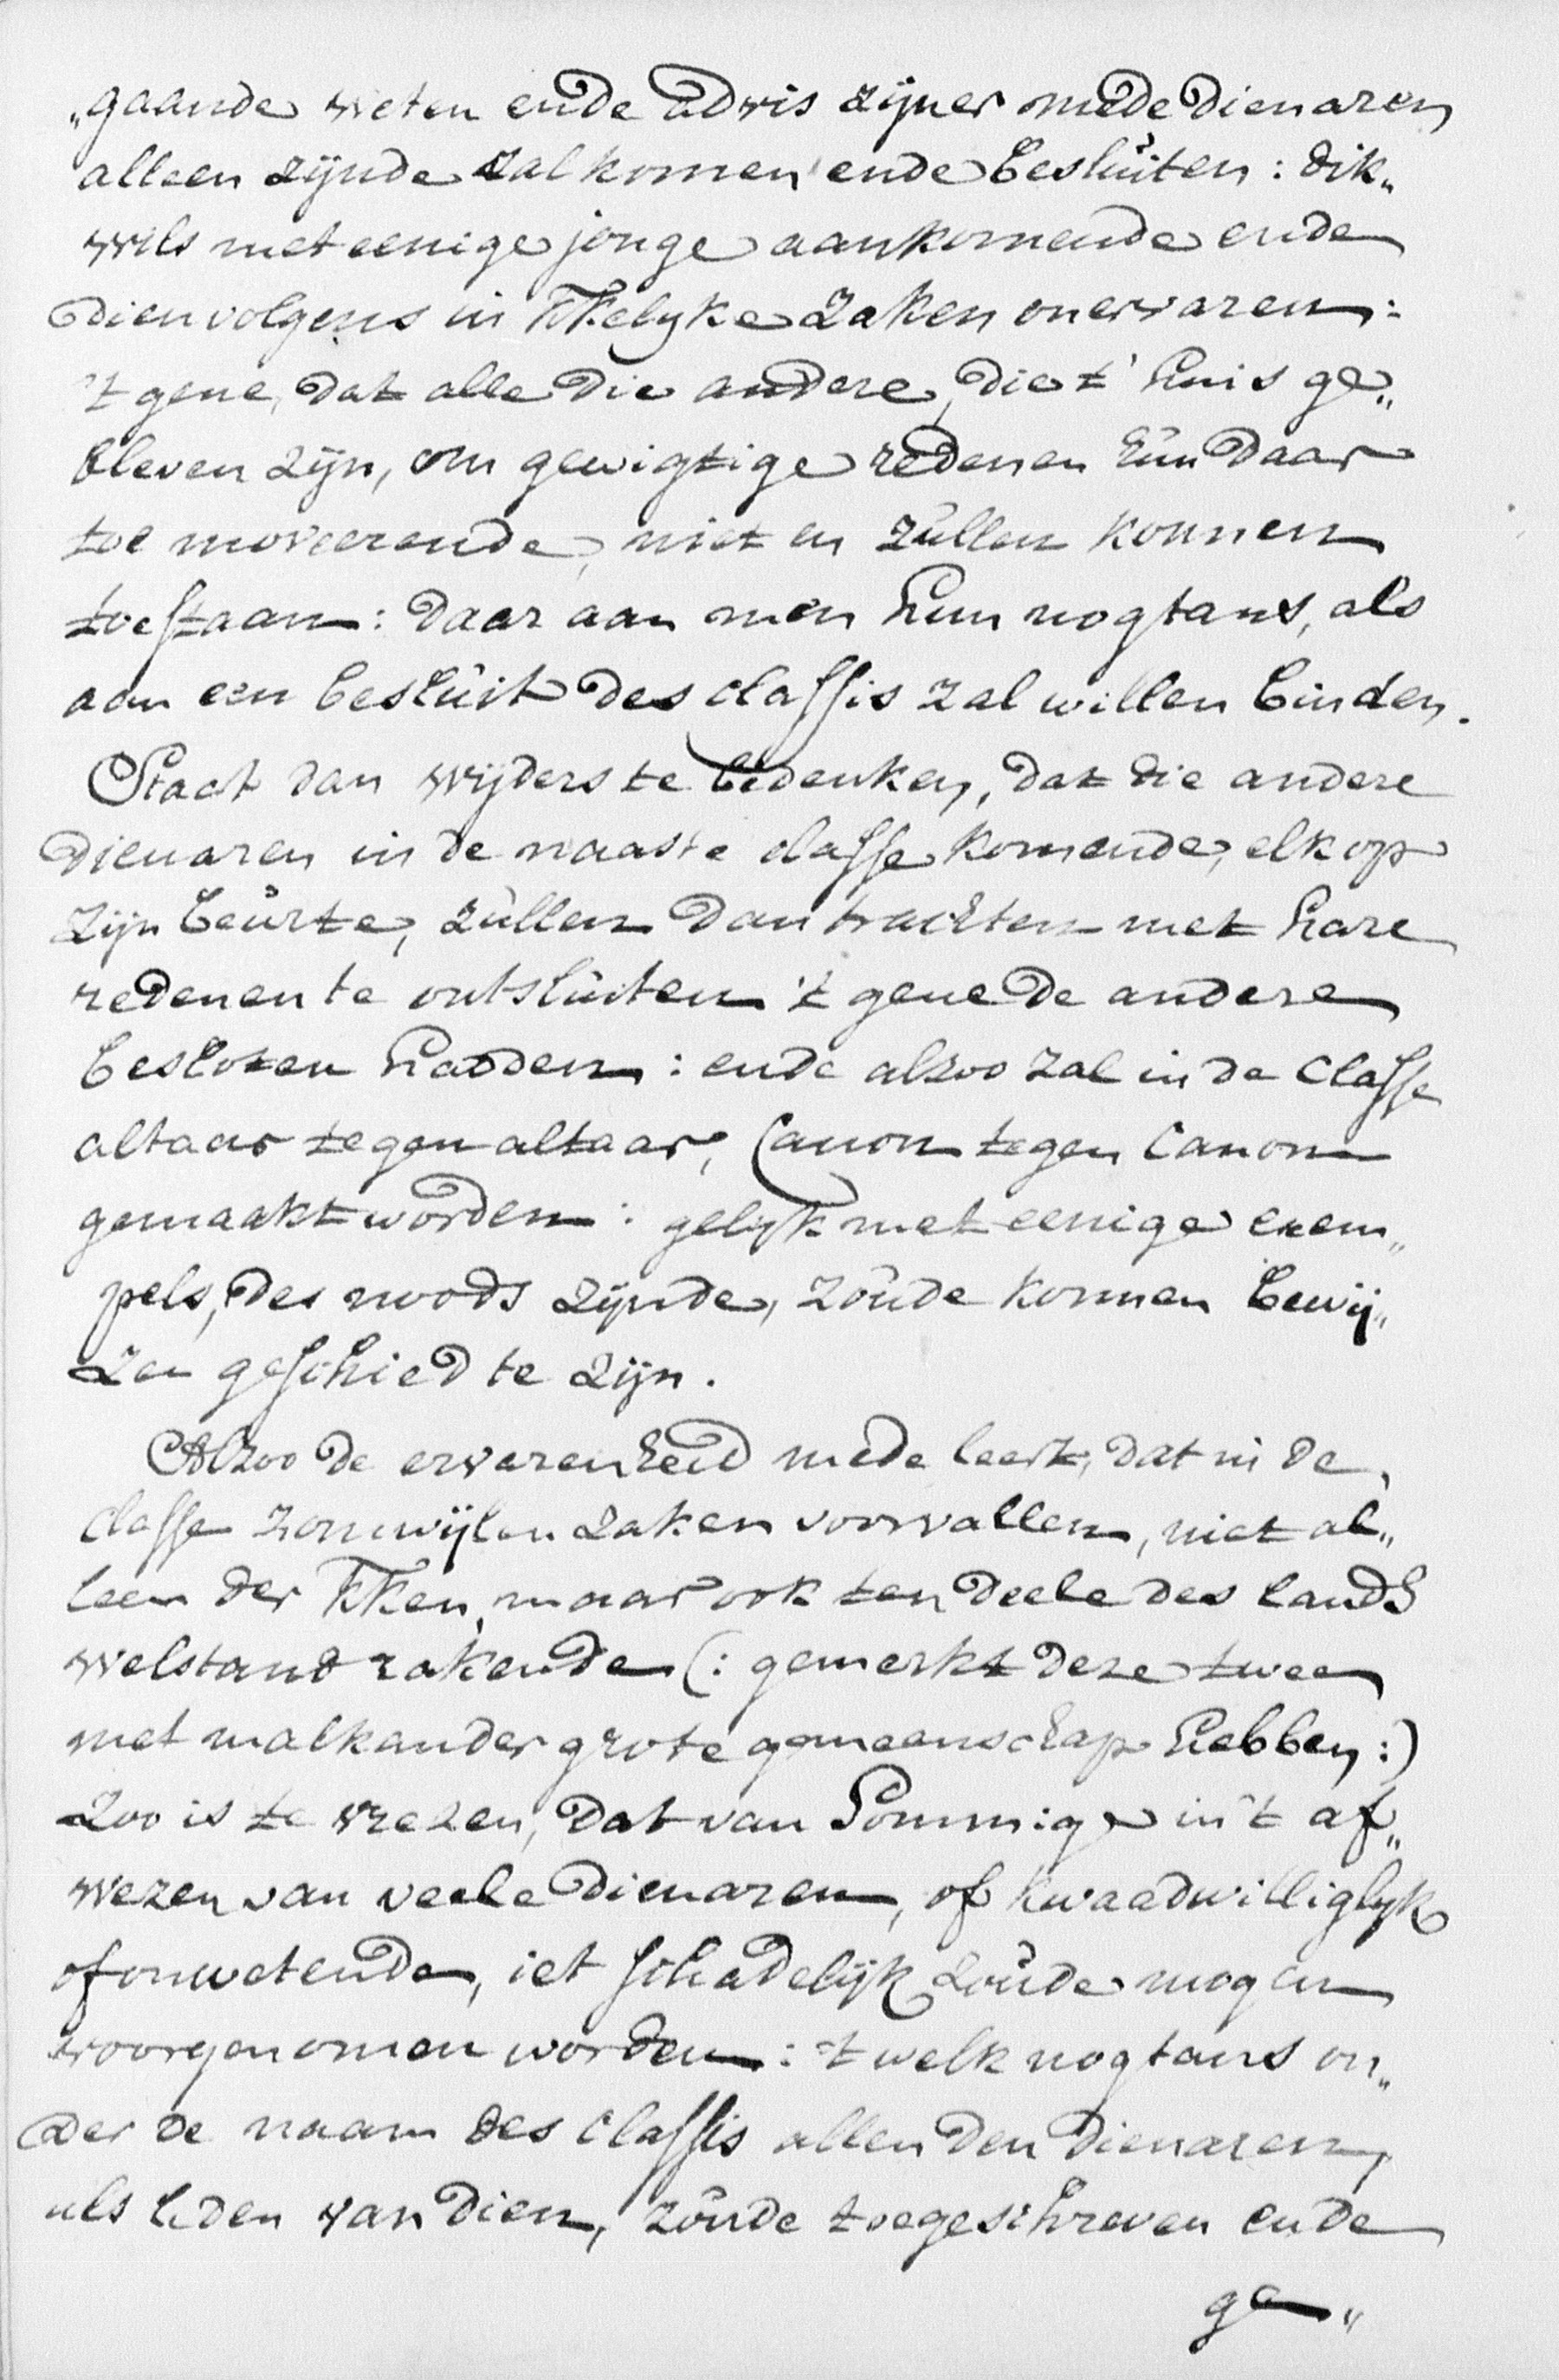 „gaande weten ende advis zijner mede Dienaren
alleen zijnde zal komen ende besluiten: dik„
wils met eenige jonge aankomende ende
dienvolgens in KKelyke zaken onervaren:
't gene, dat alle die andere, die t' huis ge„
bleven zijn, om gewigtige redenen hun daar
toe moveerende, niet en zullen konnen
toestaan: daar aan men hun nogtans, als
aan een besluit des classis zal willen binden.
Staat dan wijders te bedenken, dat die andere
Dienaren in de naaste classe komende, elk op
zijn beurte, zullen dan trachten met hare
redenen te ontsluiten 't gene de andere
besloten hadden: ende alzoo zal in de Classe
altaar tegen altaar, Canon tegen Canon
gemaakt worden: gelijk met eenige exem„
pels, des noods zijnde, zoude konnen bewij„
zen geschied te zijn.
Alzoo de ervarenheid mede leert, dat in de
classe zomwijlen zaken voorvallen, niet al„
leen der KKen, maar ook ten deele des lands
welstand rakende (: gemerkt deze twee
met malkander grote gemeenschap hebben :)
Zoo is te vrezen, dat van Sommige in 't af„
wezen van veele Dienaren, of kwaadwilliglyk
of onwetende, iet schadelijk zoude mogen
voorgenomen worden: 't welk nogtans on„
der de naam des Classis allen den Dienaren,
als leden van dien, zoude toegeschreven ende
ge„